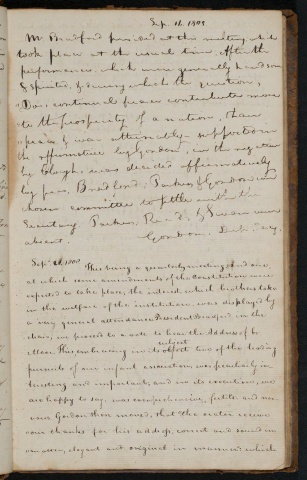 Sep. 11. 1802
Mr. Bradford presided at this meeting which
took place at the usual time. After the
performances, which were generally handsome
& spirited, & during which the question,
Does continual peace contribute more
to the prosperity of a nation, than
was ably supported in
the affirmative by Gordon, in the negative
by Clough, was decided affirmatively
by pres. Bradford, Parker, & Gordon were
chosen committee to settle with the
Secretary. Parker, & Swan were
absent. Gordon. Dep. Secy.
Sept. 1802 This being a quarterly meeting and one,
at which some amendments of the Constitution were
expected to take place, the interest, which brothers take
in the welfare of the institution, was displayed by
a very general attendance. President Bradford in the
chair, we proceed to a vote to hear the Address of br.
This embracing in its subject two of the leading
pursuits of our infant association, was peculiarly in-
teresting and important; and in its execution, we
are happy to say, was comprehensive, fertile and ner-
vous. Gordon then moved, that the orator receive
our thanks for his address, correct and sound in
matter, elegant and original in manner; which